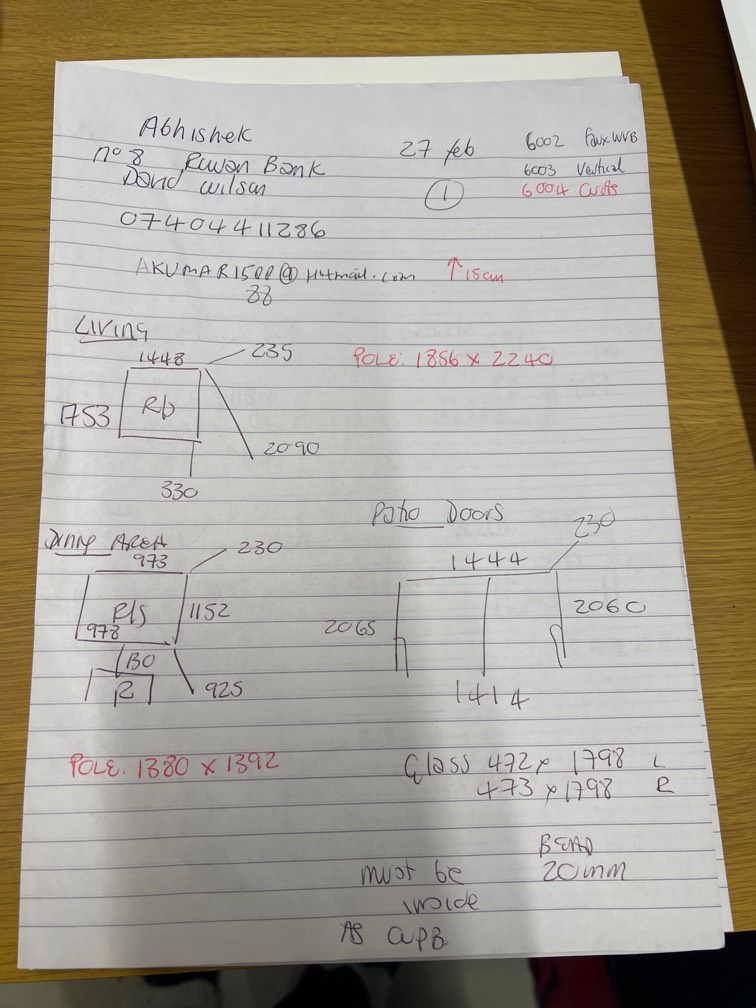 Abhishek
27 feb
6002 FauxWVB
nº 8 Rowan Bank
6003 Vertical
David Wilson
1
6004 Curts
07404411286
AKUMAR1500@Hotmail.com
↑18cm
88
LIVING
1448
235
POLE: 1856 × 2240
1753
Rb
2090
330
Patio Doors
230
Dining AREA
973
230
1444
R/S
1152
2065
2060
978
130
R
925
1414
POLE. 1380 × 1392
Glass 472 × 1798 L
473 × 1798 R
BEAD
must be
20mm
inside
AS CUPB.